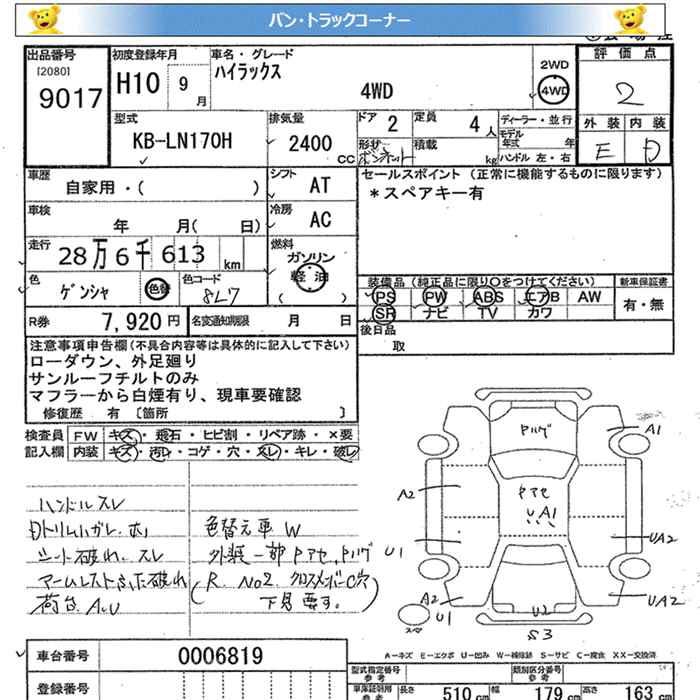 バン・トラックコーナー
出品番号
[2080]
9017
初度登録年月
H10 9月
車名・グレード
ハイラックス
4WD
2WD
4WD
評価点
2
型式
KB-LN170H
排気量
2400 cc
ドア 2
定員 4人
形状
ボンネット
積載 kg
ディーラー・並行
モデル年式 年
ハンドル 左・右
外装 内装
E D
車歴
自家用・( )
シフト
AT
セールスポイント (正常に機能するものに限ります)
*スペアキー有
車検
年 月( 日)
冷房
AC
走行
28万6千613 km
燃料
ガソリン
軽油
( )
色
ゲンシャ
色替
色コード
8L7
装備品 (純正品に限り○をつけてください)
PS PW ABS エアB AW
SR ナビ TV カワ
新車保証書
有・無
R券 7,920円
名変通知期限 月 日
後日品
取
注意事項申告欄(不具合内容等は具体的に記入して下さい)
ローダウン、外足廻り
サンルーフチルトのみ
マフラーから白煙有り、現車要確認
修復歴 有 [箇所 ]
検査員記入欄
FW キズ・飛石・ヒビ割・リペア跡・×要
内装 キズ・汚レ・コゲ・穴・スレ・キレ・破レ
ハンドルスレ
シート破れ、スレ
アームレストふた破れ
荷台 A、U
色替え車 W
外装一部Pアセ、Pハゲ
(R. No2. クロスメンバーC穴
下見要す。)
Pハゲ
A1
A2
Pアセ
UA1
U1
UA2
A2
U1
U2
UA2
スペア
S3
A-キズ E-エクボ U-凹み W-補修跡 S-サビ C-腐食 XX-交換済
車台番号
0006819
登録番号
型式指定番号
参考
類別区分番号
参考
車庫証明用
参考
長さ 510 cm
幅 179 cm
高さ 163 cm